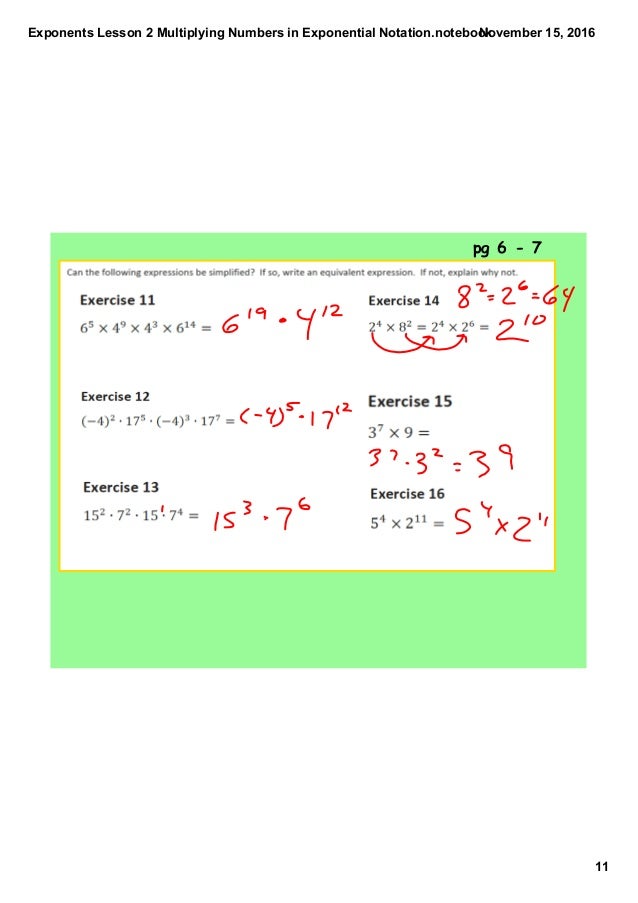 Exponents Lesson 2 Multiplying Numbers in Exponential Notation.notebook
November 15, 2016
pg 6 - 7
Can the following expressions be simplified? If so, write an equivalent expression. If not, explain why not.
Exercise 11
6⁵ × 4⁹ × 4³ × 6¹⁴ = 6¹⁹ · 4¹²
Exercise 14
8² = 2⁶ = 64
2⁴ × 8² = 2⁴ × 2⁶ = 2¹⁰
Exercise 12
(−4)² · 17⁵ · (−4)³ · 17⁷ = (-4)⁵ · 17¹²
Exercise 15
3⁷ × 9 =
3⁷ · 3² = 3⁹
Exercise 13
15² · 7² · 15¹ · 7⁴ = 15³ · 7⁶
Exercise 16
5⁴ × 2¹¹ = 5⁴ × 2¹¹
11